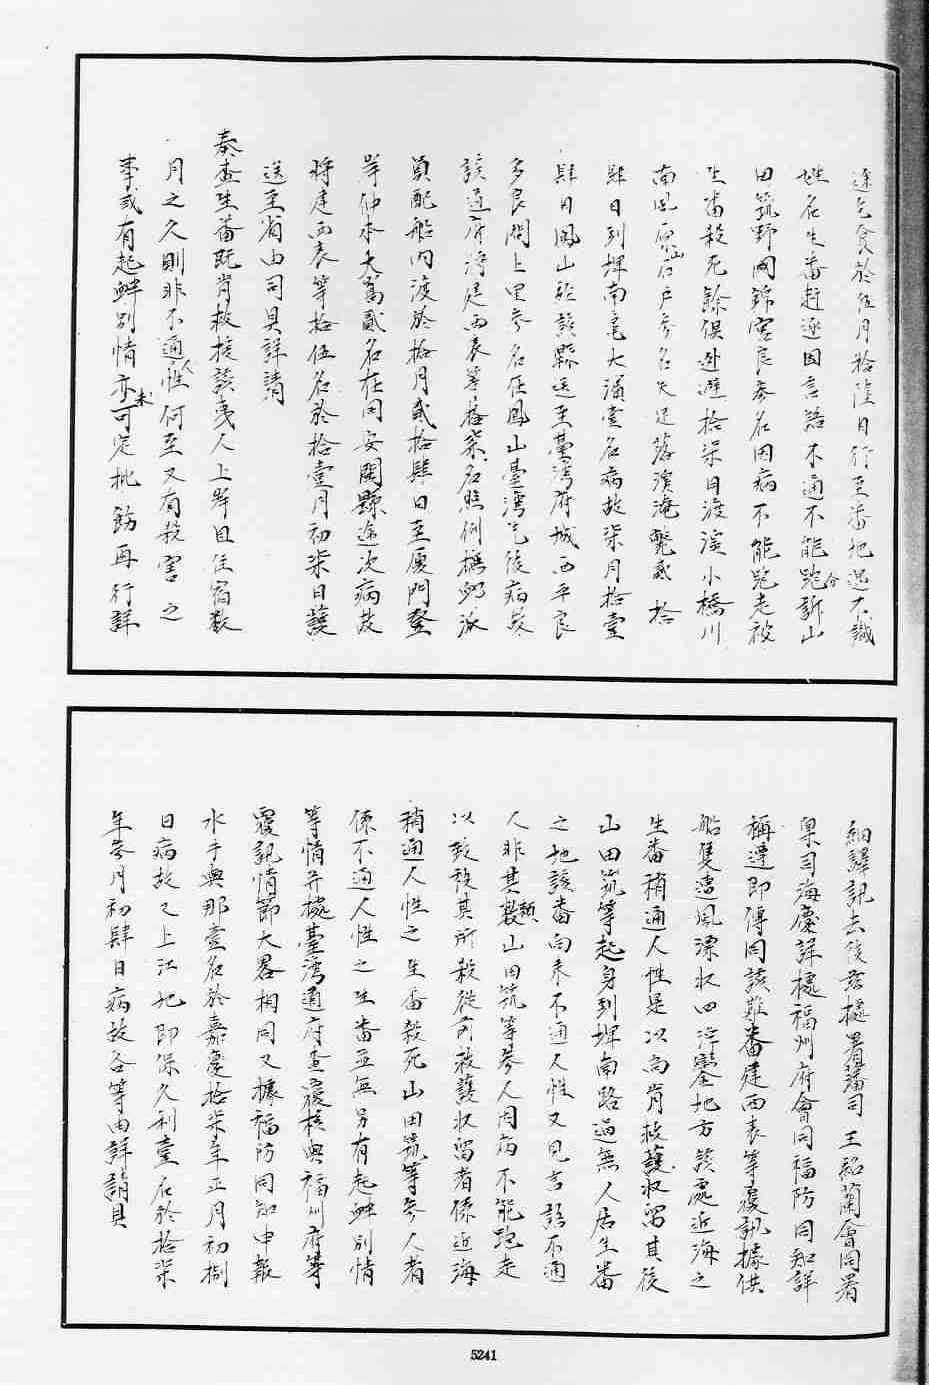 途乞食於伍月拾陸日行至番地遇不識
姓名生番趕逐因言語不通不能跑分訴山
田筑野岡錦宮良參名因病不能跑走被
生番殺死餘俱逃避拾柒日渡濱小橋川
南風原山戶參名失足落濱淹斃貳拾
肆日到埤南毛大濱壹名病故柒月拾壹
肆日鳳山縣該縣送至臺灣府城西平良
多良間上里參名在鳳山臺灣乞後病故
該道府淨建西表等拾柒名照例犒邺派
員配船內渡於拾月貳拾肆日至廈門登
岸仲本大舊貳名在同安閩縣途次病故
將建西表等拾伍名於拾壹月初柒日護
送至省由司具詳請
奏查生番既肯救接該夷人上岸且住宿數
月之久則非不通人性何至又有殺害之
事或有起衅別情亦未可定批飭再行詳
細譯訊去後茲據署藩司王紹蘭會同署
臬司海慶詳據福州府會同福防同知詳
稱遵即傳同該難番建西表等覆訊據供
船隻遭風漂收四浮鑾地方該處近海之
生番稍通人性是以尚肯救護收留其後
山田筑等起身到埤南路過無人居生番
之地該番向來不通人性又見言語不通
人非其類山田筑等參人因病不能跑走
以致被其所殺從前救護收留者係近海
稍通人性之生番殺死山田筑等參人者
係不通人性之生番並無另有起衅別情
等情并據臺灣道府查覆核與福州府等
覆訊情節大畧相同又據福防同知申報
水手與那壹名於嘉慶拾柒年正月初捌
日病故又上江地即保久利壹名於拾柒
年參月初肆日病故各等由詳請具
5241